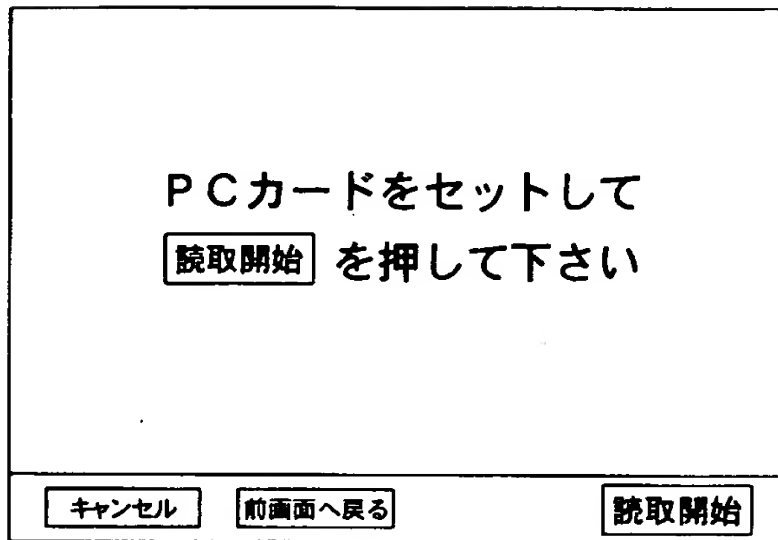 PCカードをセットして
読取開始 を押して下さい
キャンセル 前画面へ戻る 読取開始